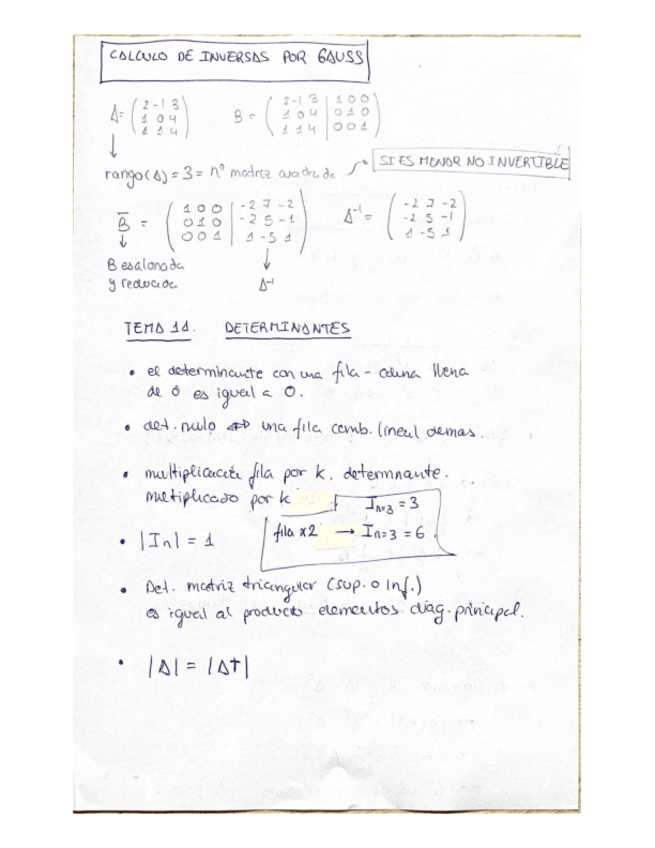 CALCULO DE INVERSAS POR GAUSS
A = ( 2 -1 3 B = ( 2 -1 3 | 1 0 0
1 0 4 1 0 4 | 0 1 0
1 1 4 ) 1 1 4 | 0 0 1 )
rango(A) = 3 = nº matriz cuadrada. → SI ES MENOR NO INVERTIBLE
B̅ = ( 1 0 0 | -2 7 -2 A⁻¹ = ( -2 7 -2
0 1 0 | -2 5 -1 -2 5 -1
0 0 1 | 1 -5 1 ) 1 -5 1 )
B esalonada
y reducida A⁻¹
TEMA 11. DETERMINANTES
• el determinante con una fila - coluna llena
de 0 es igual a 0.
• det. nulo ⇔ una fila comb. lineal demas.
• multiplicación fila por k. determinante.
multiplicado por k
Iₙ₌₃ = 3
fila x2 → Iₙ₌₃ = 6.
• |Iₙ| = 1
• Det. matriz triangular (sup. o inf.)
es igual al producto elementos diag. principal.
• |A| = |At|